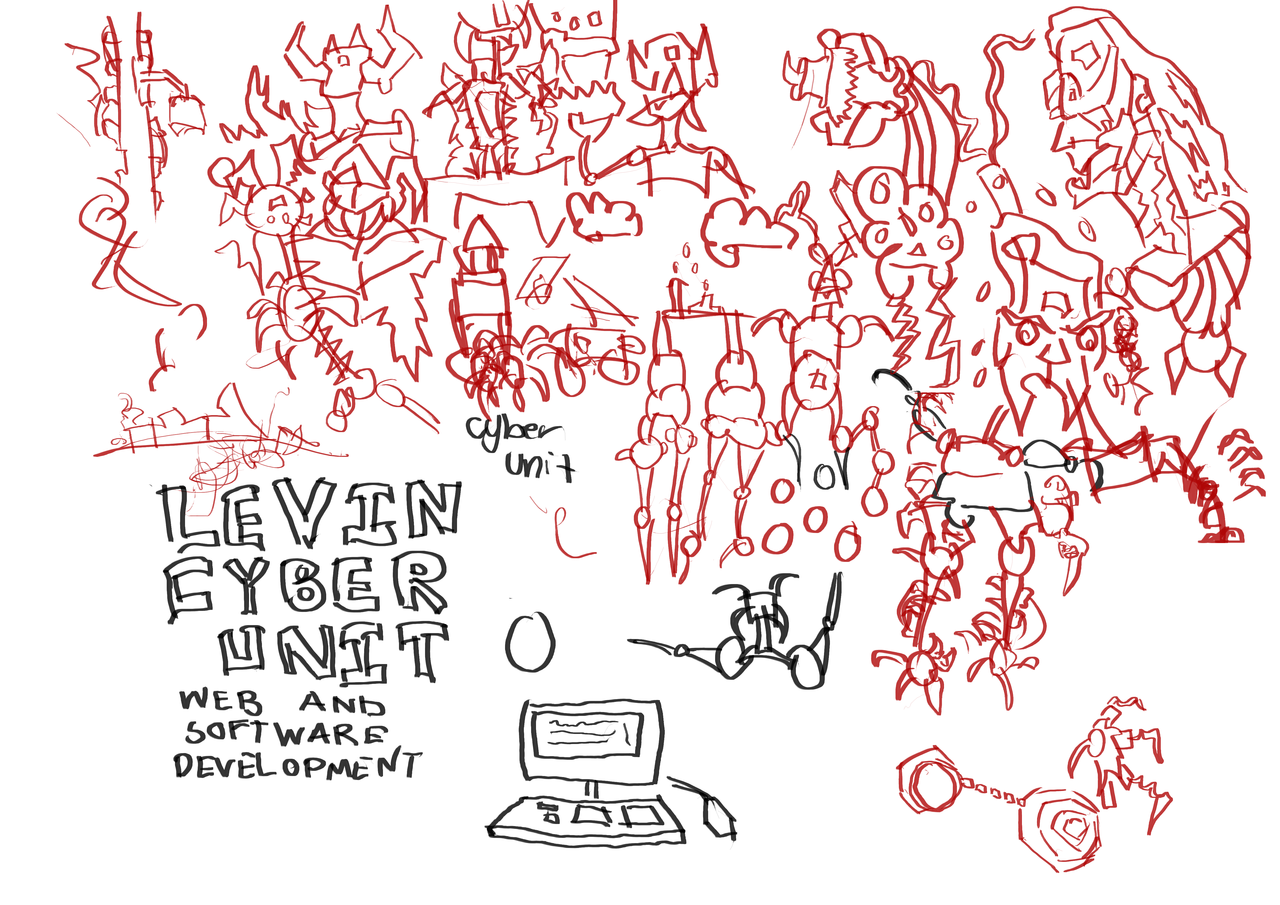 cyber
unit
LEVIN
CYBER
UNIT
WEB AND
SOFTWARE
DEVELOPMENT